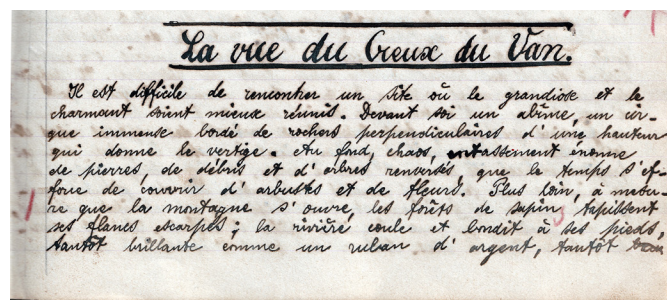 La vue du Creux du Van.
Il est difficile de rencontrer un site où le grandiose et le
charmant soient mieux réunis. Devant soi un abîme, un cir-
que immense bordé de rochers perpendiculaires d'une hauteur
qui donne le vertige. Au fond, chaos, entassement énorme
de pierres, de débris et d'arbres renversés, que le temps s'ef-
force de couvrir d'arbustes et de fleurs. Plus loin, à mesu-
re que la montagne s'ouvre, les forêts de sapin, tapissent
ses flancs escarpés; la rivière coule et bondit à ses pieds,
tantôt brillante comme un ruban d'argent, tantôt